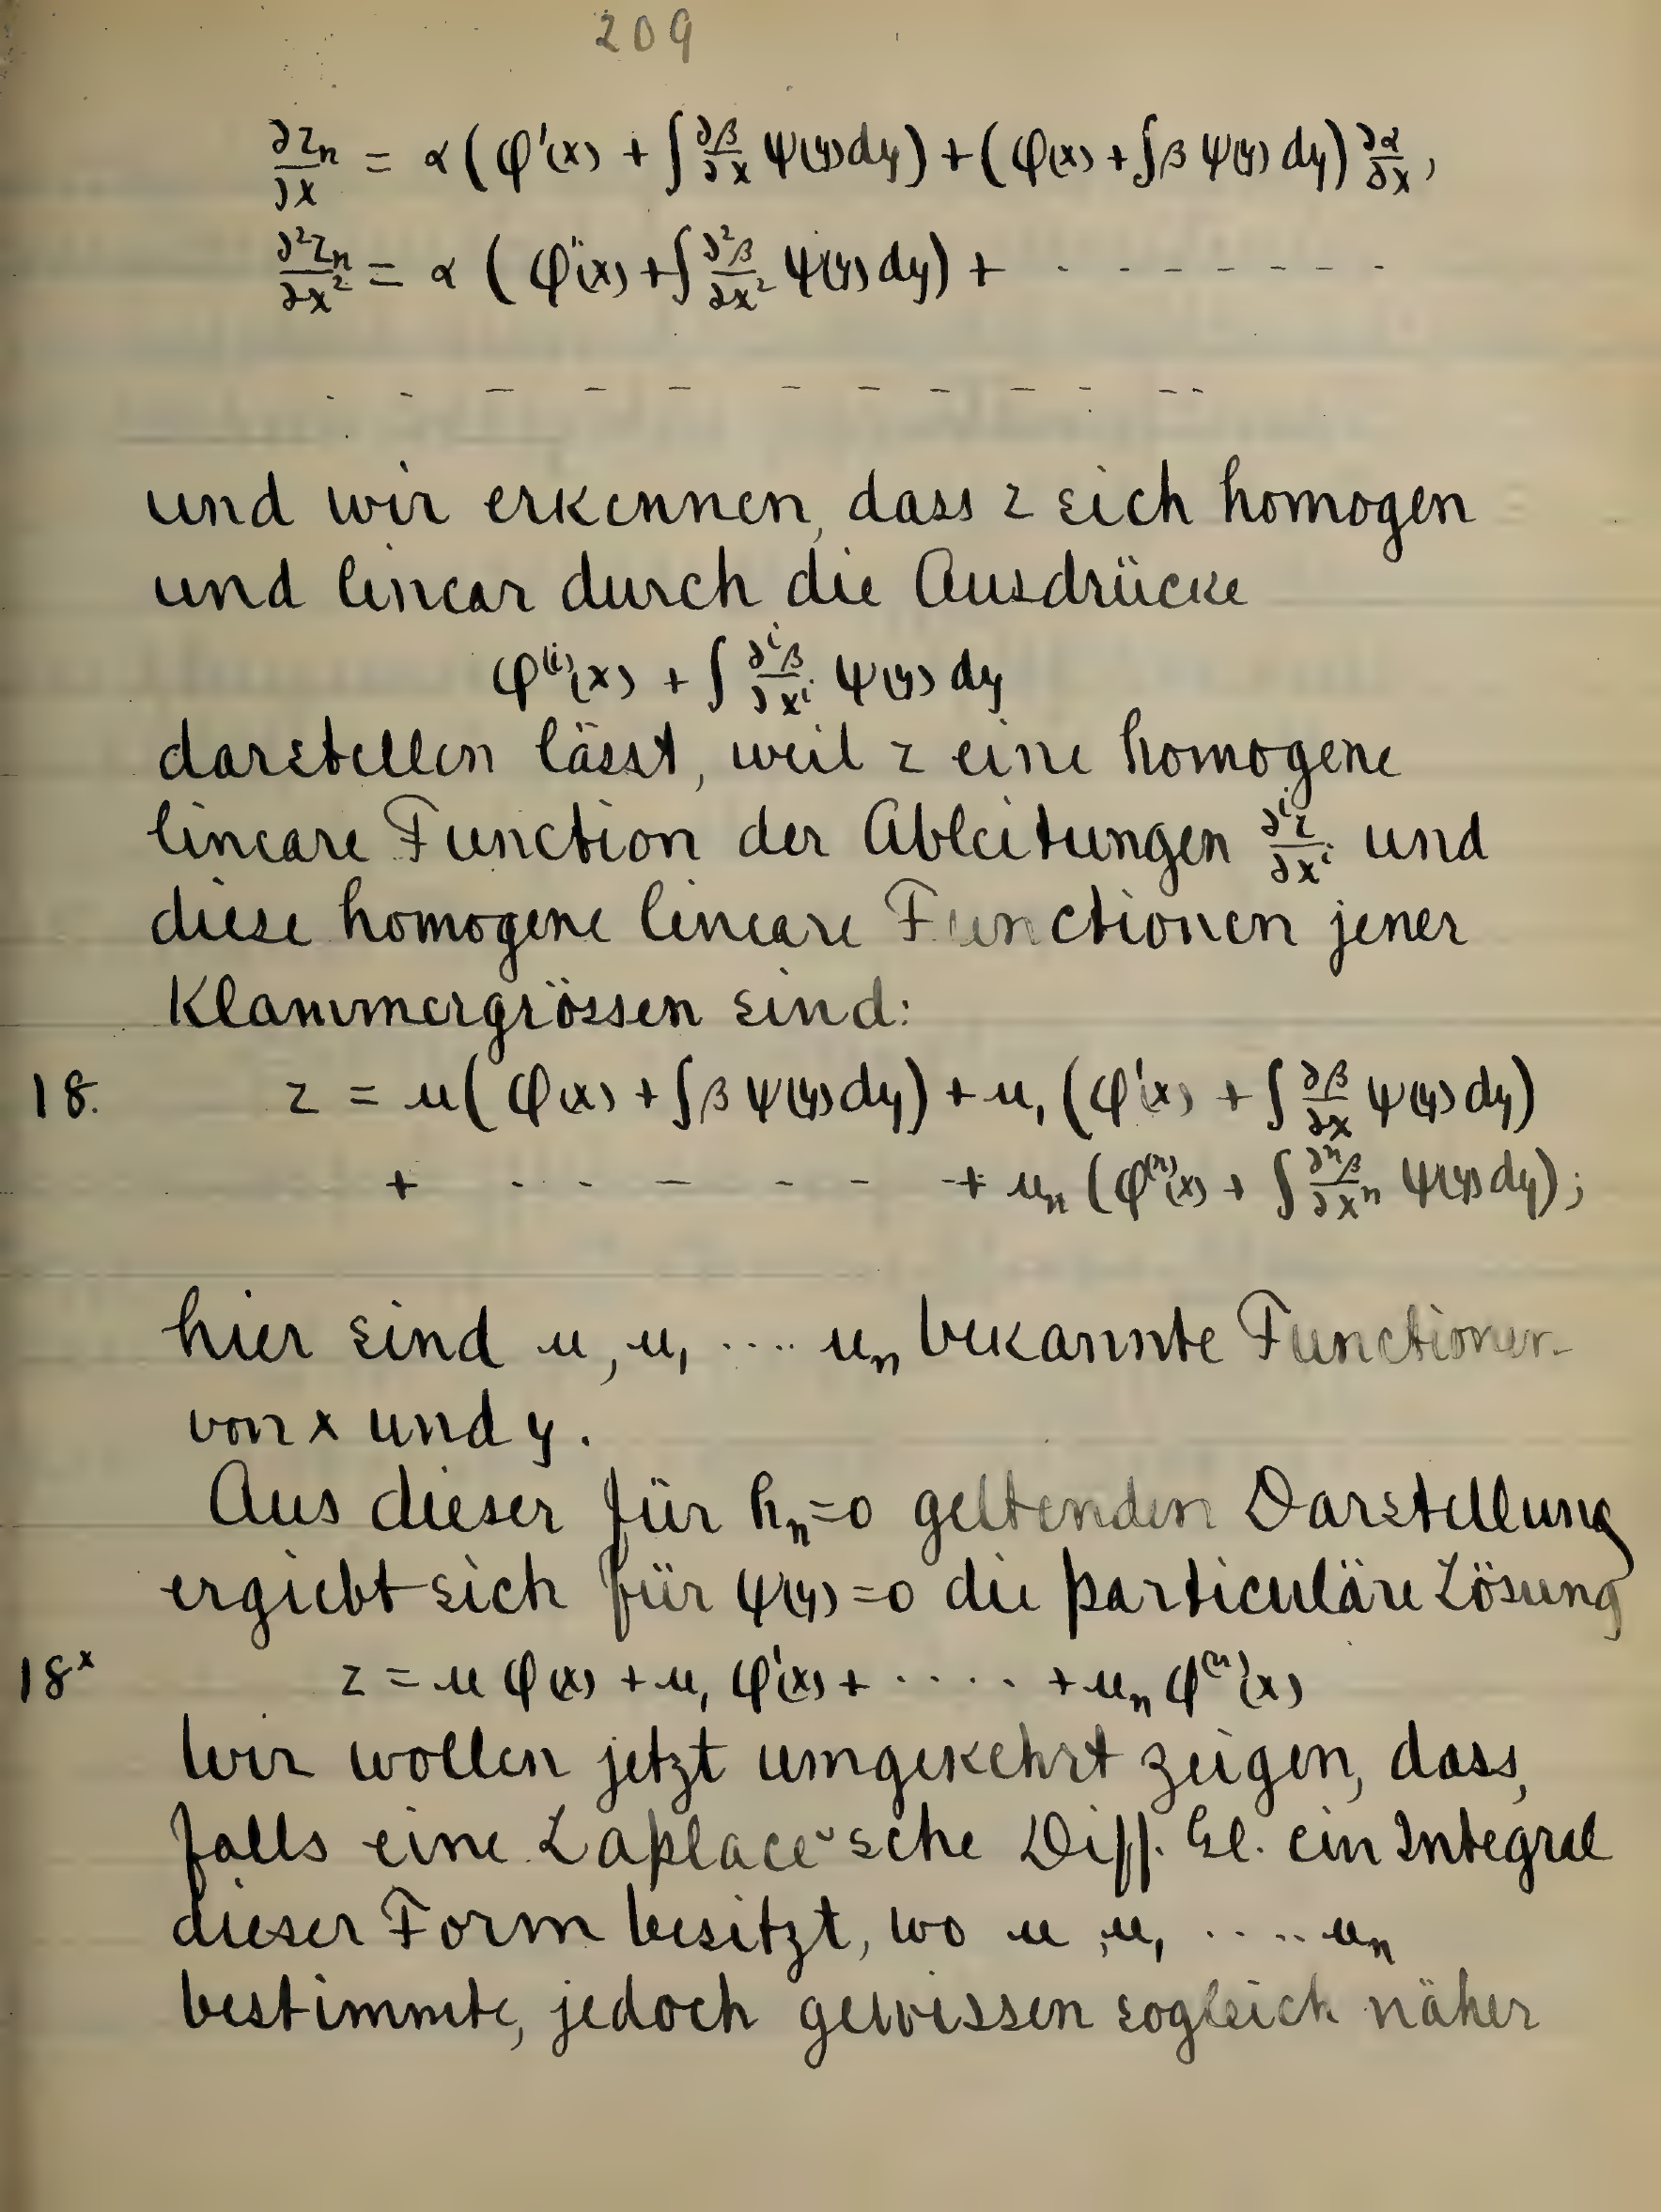 209
∂z_n/∂x = α (φ'(x) + ∫ ∂β/∂x ψ(y) dy) + (φ(x) + ∫ β ψ(y) dy) ∂α/∂x,
∂²z_n/∂x² = α (φ''(x) + ∫ ∂²β/∂x² ψ(y) dy) + - - - - - - - -
- - - - - - - - - - - -
und wir erkennen, dass z sich homogen
und linear durch die Ausdrücke
φ^(i)(x) + ∫ ∂^iβ/∂x^i ψ(y) dy
darstellen lässt, weil z eine homogene
lineare Function der Ableitungen ∂^i z/∂x^i und
diese homogene lineare Functionen jener
Klammergrössen sind:
18. z = u (φ(x) + ∫ β ψ(y) dy) + u₁ (φ'(x) + ∫ ∂β/∂x ψ(y) dy)
+ - - - - - - + u_n (φ^(n)(x) + ∫ ∂^nβ/∂x^n ψ(y) dy);
hier sind u, u₁ .... u_n bekannte Functionen
von x und y.
Aus dieser für h_n=0 geltenden Darstellung
ergiebt sich für ψ(y)=0 die particuläre Lösung
18ˣ z = u φ(x) + u₁ φ'(x) + ..... + u_n φ^(n)(x)
Wir wollen jetzt umgekehrt zeigen, dass,
falls eine Laplace'sche Diff. Gl. ein Integral
dieser Form besitzt, wo u, u₁ ..... u_n
bestimmte, jedoch gewissen sogleich näher